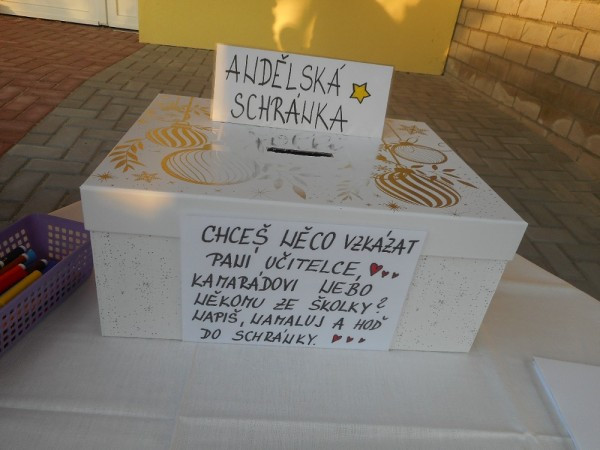 ANDĚLSKÁ
SCHRÁNKA
CHCEŠ NĚCO VZKÁZAT
PANÍ UČITELCE,
KAMARÁDOVI NEBO
NĚKOMU ZE ŠKOLKY?
NAPIŠ, NAMALUJ A HOĎ
DO SCHRÁNKY.